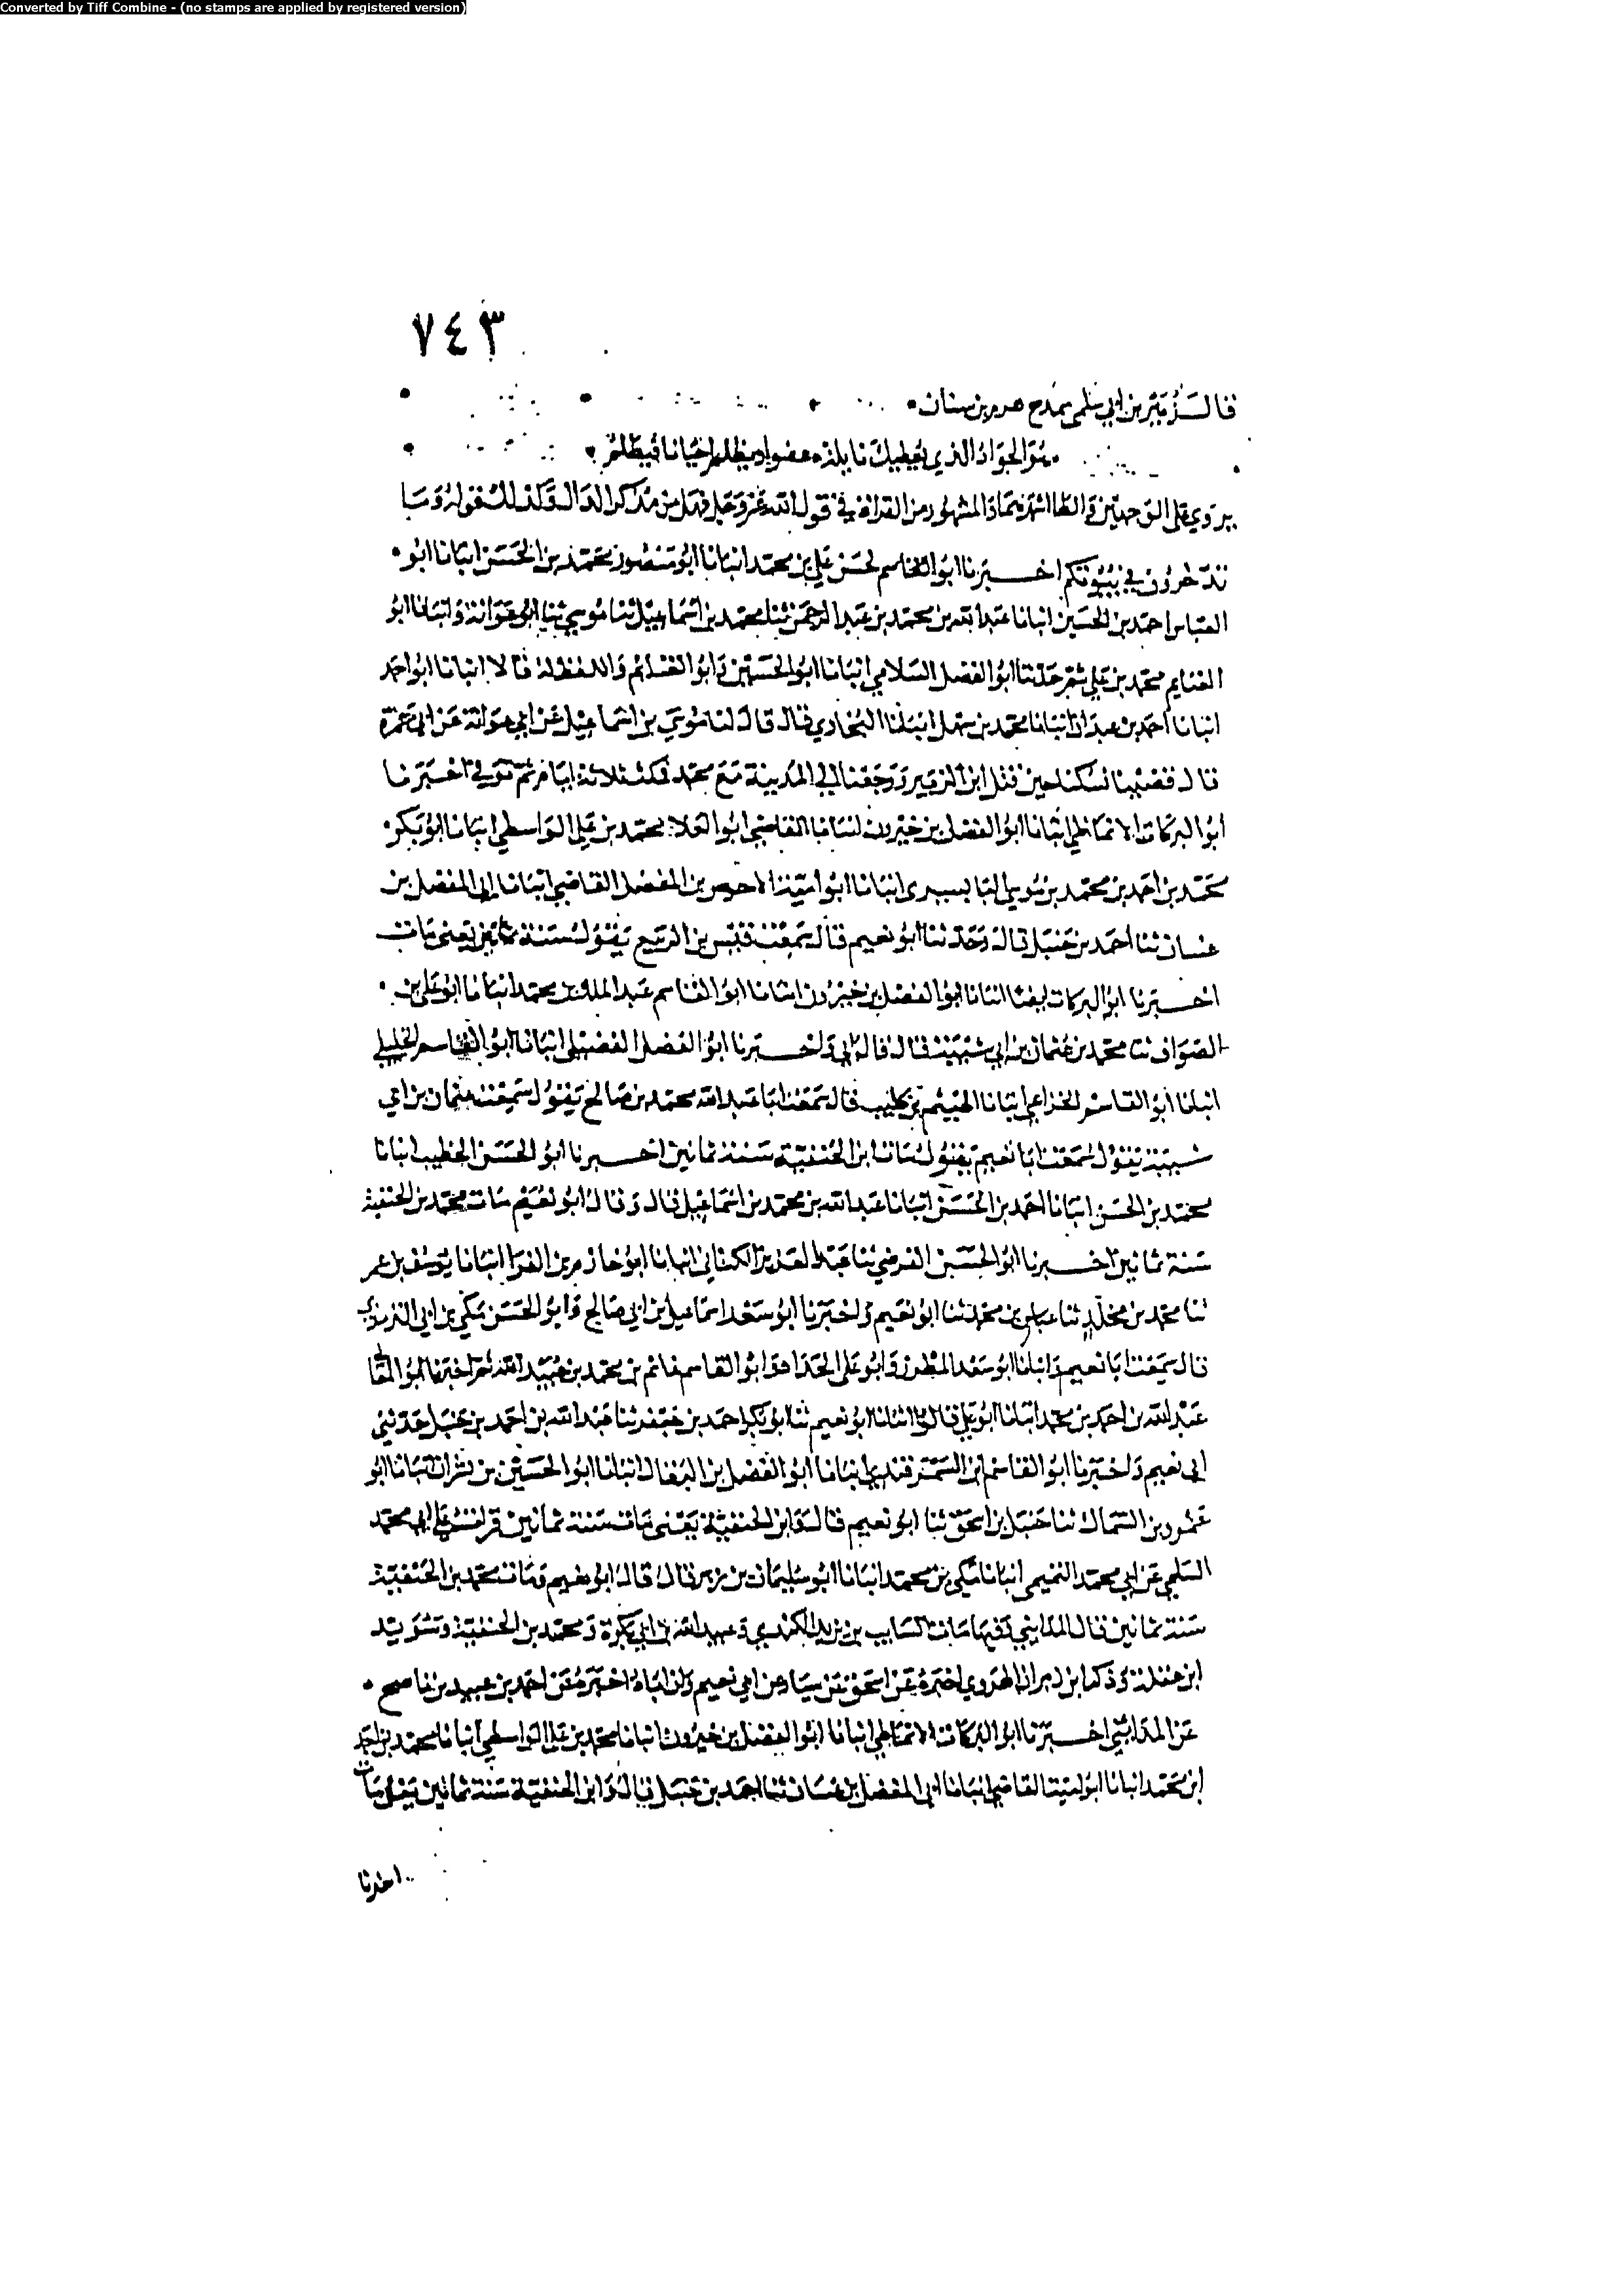 Converted by Tiff Combine - (no stamps are applied by registered version)
٧٤٣
قال زهير بن ابي سلمى يمدح هرم بن سنان
هو الجواد الذي يعطيك نايله عفوا ويظلم احيانا فيظلم
يروي على الوجهين والطا اشهرهما والمشهور من القراة في قول الله عز وجل فهل من مدكر الدال وكذلك قوله وما
تدخرون في بيوتكم اخبرنا ابو القاسم لحسن علي بن محمد انبانا ابو منصور محمد بن الحسن انبانا ابو
العباس احمد بن الحسين انبانا عبد الله بن محمد بن عبد الرحمن ثنا محمد بن اسماعيل ثنا موسي ثنا ابو عوانة وانبانا ابو
الغنايم محمد بن علي ثم حدثنا ابو الفضل السلامي انبانا ابو الحسين وابو الغنائم واللفظ له قالا انبانا ابو احمد
انبانا احمد بن عبدان انبانا محمد بن سهل انبانا البخاري قال قال لنا موسي بن اسماعيل عن ابي عوانة عن ابي حمزة
قال فقضينا نسكنا حين قتل ابن الزبير ورجعنا الي المدينة مع محمد فمكث ثلاثة ايام ثم توفي اخبرنا
ابو البركات الانماطي انبانا ابو الفضل بن خيرون انبانا القاضي ابو العلا محمد بن علي الواسطي انبانا ابو بكر
محمد بن احمد بن محمد بن موسي البابسيري انبانا ابو امية الاحوص بن المفضل القاضي انبانا ابي المفضل بن
غسان ثنا احمد بن حنبل قال وحدثنا ابو نعيم قال سمعت قيس بن الربيع يقول سنة ثمانين يعني مات
اخبرنا ابو البركات ايضا انبانا ابو الفضل بن خيرون انبانا ابو القاسم عبد الملك بن محمد انبانا ابو علي بن
الصواف ثنا محمد بن عثمان بن ابي شيبة قال قال ابي واخبرنا ابو الفضل الفضيلي انبانا ابو القاسم الخليلي
انبانا ابو القاسم الخزاعي انبانا الهيثم بن كليب قال سمعت ابا عبد الله محمد بن صالح يقول سمعت عثمان بن ابي
شيبة يقول سمعت ابا نعيم يقول مات ابن الحنفية سنة ثمانين اخبرنا ابو الحسن الخطيب انبانا
محمد بن الحسن انبانا احمد بن الحسين انبانا عبد الله بن محمد بن اسماعيل قال وقال ابو نعيم مات محمد بن الحنفية
سنة ثمانين اخبرنا ابو الحسين الفرضي ثنا عبد العزيز الكتاني انبانا ابو خازم بن الفرا انبانا يوسف بن عمر
ثنا محمد بن مخلد ثنا عباس بن محمد ثنا ابو نعيم واخبرنا ابو سعد اسماعيل بن ابي صالح وابو الحسن مكي بن ابي
قال سمعت ابا نعيم وانبانا ابو سعد المطرز وابو علي الحداد وابو القاسم غانم بن محمد بن عبيد الله ثم اخبرنا ابو المعالي
عبد الله بن احمد بن محمد انبانا ابو علي قالوا انبانا ابو نعيم ثنا ابو بكر احمد بن جعفر ثنا عبد الله بن احمد بن حنبل حدثني
ابي نعيم واخبرنا ابو القاسم ابن السمرقندي انبانا ابو الفضل بن البقال انبانا ابو الحسين بن بشران انبانا ابو
عمرو بن السماك ثنا حنبل بن اسحق ثنا ابو نعيم قال وابن الحنفية يعني مات سنة ثمانين قرات علي ابي محمد
السلمي عن ابي محمد التميمي انبانا مكي بن محمد انبانا ابو سليمان بن زبر قال قال ابو نعيم ومات محمد بن الحنفية
سنة ثمانين قال المدايني وفيها مات السايب بن يزيد الكندي وعبيد الله بن ابي بكرة ومحمد بن الحنفية وسويد
ابن غفلة وذكر ابن زبر ان الهروي اخبره عن اسحق بن سيار عن ابي نعيم وان اباه اخبره عن احمد بن عبيد بن ناصح
عن المدايني اخبرنا ابو البركات الانماطي انبانا ابو الفضل بن خيرون انبانا محمد بن علي الواسطي انبانا محمد بن احمد
ابن محمد انبانا ابو امية القاضي انبانا ابي المفضل بن غسان ثنا احمد بن حنبل قال وابن الحنفية سنة ثمانين يعني مات
اخبرنا